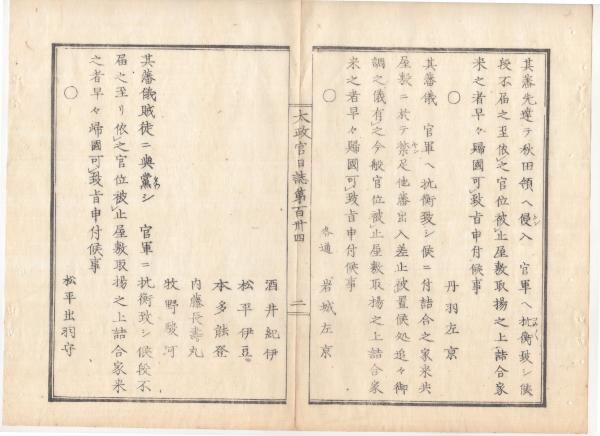 其藩先達テ秋田領ヘ侵入　官軍ヘ抗衡致シ候
段不届之至依之官位被止屋敷取揚之上詰合家
来之者早々歸國可致旨申付候事
〇
丹羽左京
其藩儀　官軍ヘ抗衡致シ候ニ付詰合之家来共
屋敷ニ於テ禁足他藩出入差止被置候処追々御
調之儀有之今般官位被止屋敷取揚之上詰合家
来之者早々歸國可致旨申付候事
〇
各通　岩城左京
太政官日誌第百卅四　二
酒井紀伊
松平伊豆
本多能登
内藤長壽丸
牧野駿河
其藩儀賊徒ニ與黨シ　官軍ニ抗衡致シ候段不
届之至リ依之官位被止屋敷取揚之上詰合家来
之者早々歸國可致旨申付候事
〇
松平出羽守